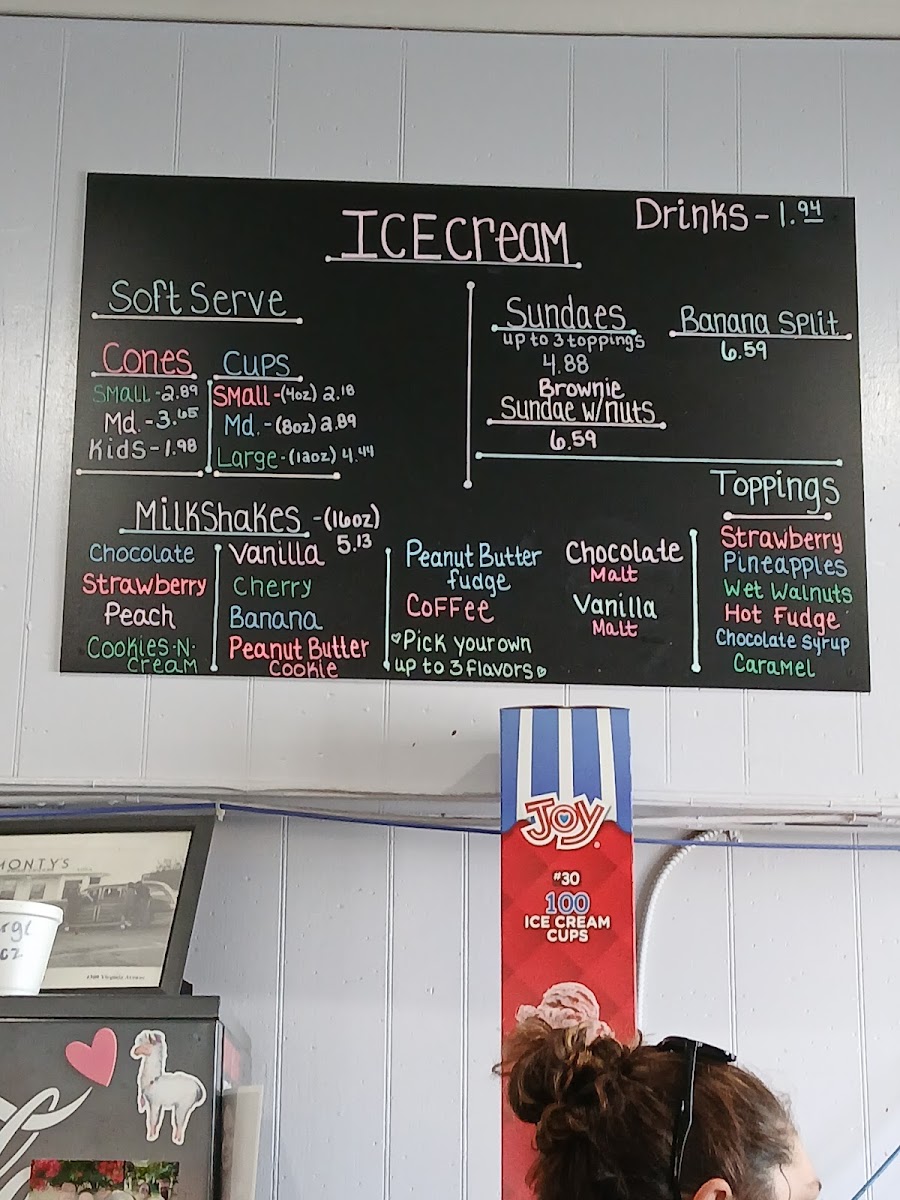 ICECream
Drinks - 1.94
Soft Serve
Cones
Small - 2.89
Md. - 3.65
Kids - 1.98
Cups
Small - (4oz) 2.18
Md. - (8oz) 2.89
Large - (12oz) 4.44
Sundaes
up to 3 toppings
4.88
Brownie
Sundae w/nuts
6.59
Banana Split
6.59
Milkshakes - (16oz)
5.13
Chocolate
Strawberry
Peach
Cookies-N-
Cream
Vanilla
Cherry
Banana
Peanut Butter
Cookie
Peanut Butter
fudge
Coffee
Pick your own
up to 3 flavors
Chocolate
Malt
Vanilla
Malt
Toppings
Strawberry
Pineapples
Wet Walnuts
Hot Fudge
Chocolate Syrup
Caramel
JOY
#30
100
ICE CREAM
CUPS
MONTYS
1500 Virginia Avenue